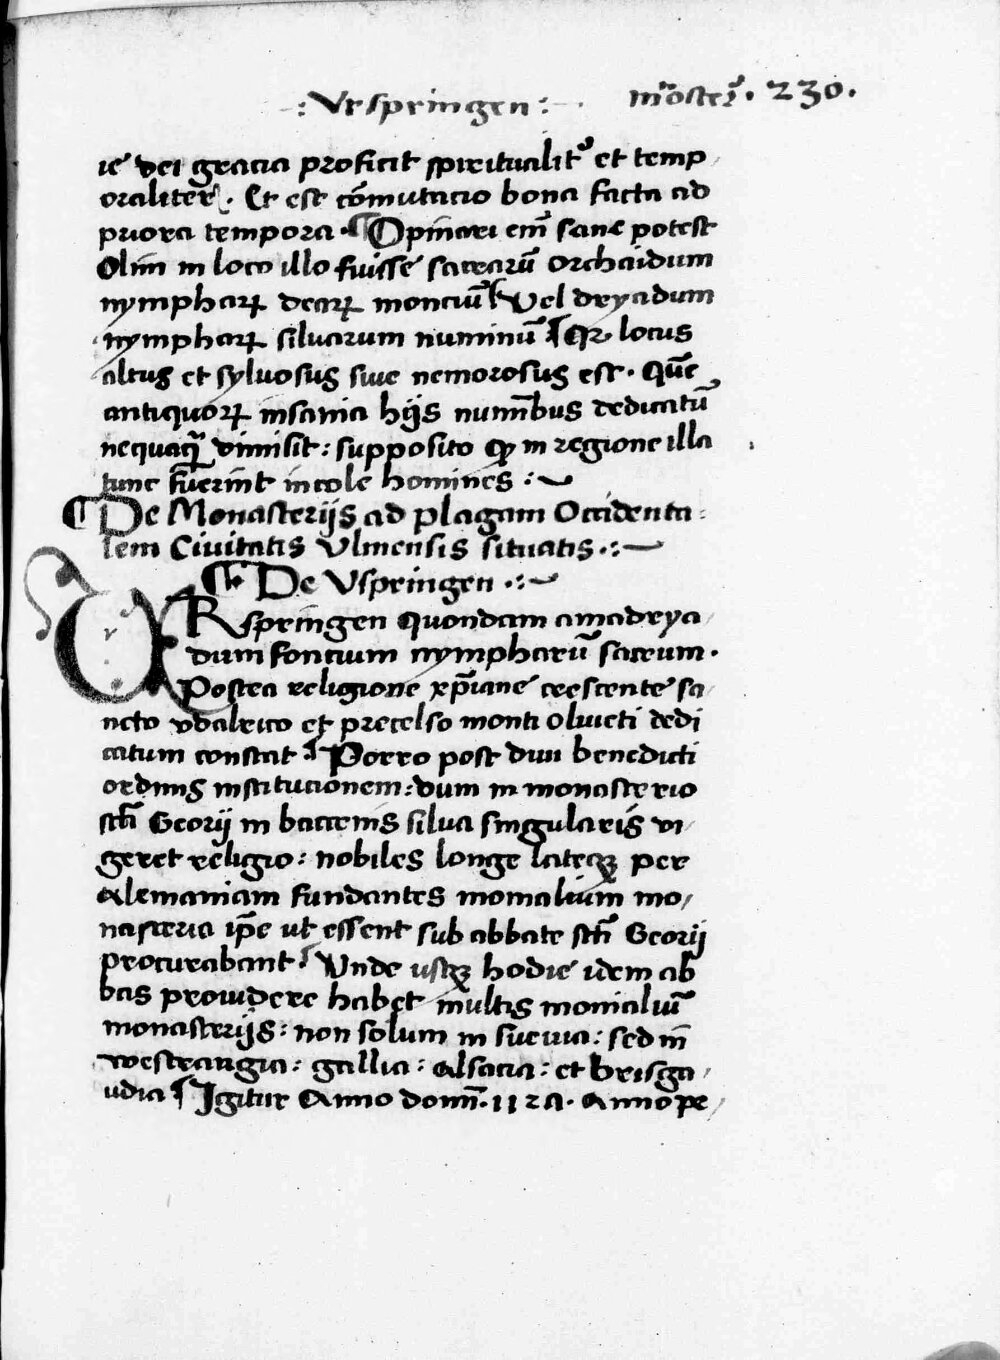 -:Urspringen:-. mᷓosterͥ. 230.
ie dei gracia proficit spiritualitᷣ et temp,
oraliter. Et est cōmutacio bona facta ad
priora tempora. ¶ Opinari em̄ sane potest
Olim in loco illo fuisse sacrarū Orchaidum
nympharꝝ dearꝝ monciū ¶ Vel dryadum
nympharꝝ siluarum numinū ¶ Qꝛ locus
altus et syluosus siue nemorosus est. Quē
antiquorꝝ insania hijs numībus dedicatū
nequaqᷓ dimisit: supposito ꝙ in regione illa
tunc fuerīnt incole homines :~
¶ De Monasterijs ad plagam Occidenta:
lem Ciuitatis Vlmensis situatis .:~
¶ De Vspringen .:~
URspringen quondam amadrya,
dum foncium nympharū sacrum.
Postea religione xp̄iane crescente sa,
ncto vdalrico et precelso monti oliueti dedi
catum constat ¶ Porro post diui benedicti
ordinis institucionem: dum in monasterio
sc̄ti Georij in bacenis silua singularis vi,
geret religio: nobiles longe lateqꝫ per
Alemaniam fundantes monialium mo,
nasteria ip̄e ut essent sub abbate sc̄ti Georij
procurabant ¶ Vnde usqꝫ hodie idem ab
bas prouidere habet multis monialiū
monasterijs: non solum in sueuia: sed in̄
westrangia: gallia: alsacia: et brisga,
udia ¶ Igitur Anno domī. 1127. Anno pe,